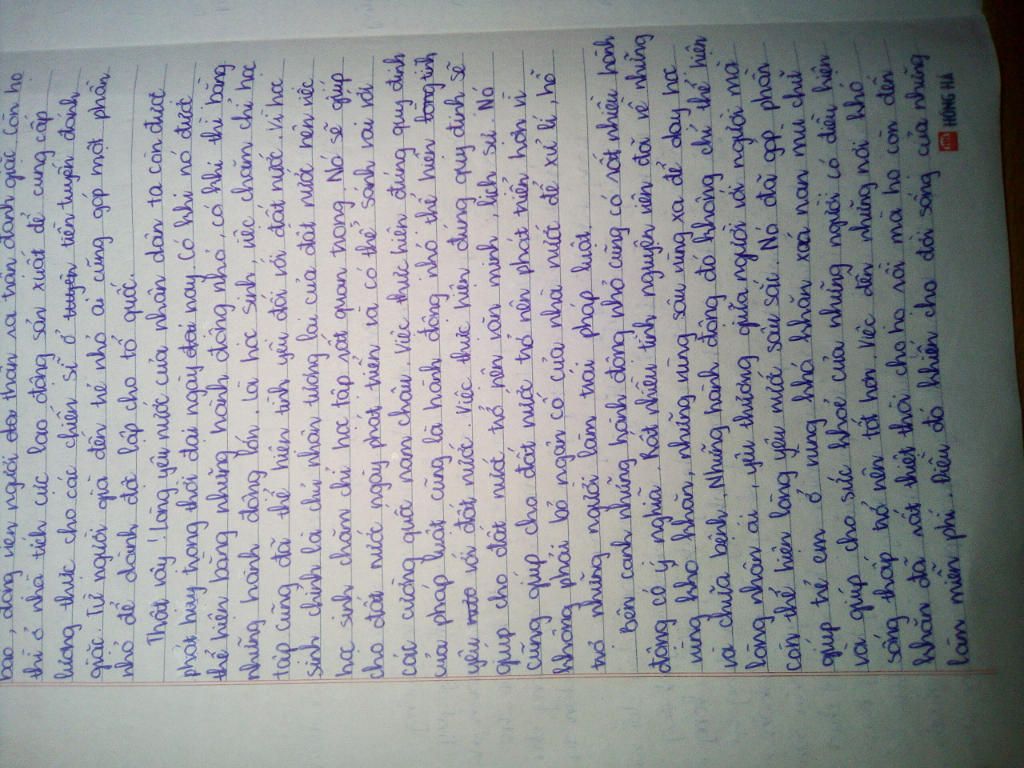 bao, động viên người ra trận đánh giặc. Còn họ
thì ở nhà tích cực lao động sản xuất để cung cấp
lương thực cho các chiến sĩ ở tiền tuyến đánh
giặc. Từ người già đến trẻ nhỏ ai cũng góp một phần
nhỏ để dành độc lập cho tổ quốc.
Thật vậy! lòng yêu nước của nhân dân ta còn được
phát huy trong thời đại ngày nay. Có khi nó được
thể hiện bằng những hành động nhỏ, có khi thì bằng
những hành động lớn. Là học sinh, việc chăm chỉ học
tập cũng đã thể hiện tình yêu đối với đất nước. Vì học
sinh chính là chủ nhân tương lai của đất nước nên việc
học sinh chăm chỉ học tập rất quan trọng. Nó sẽ giúp
cho đất nước ngày phát triển ta có thể sánh vai với
các cường quốc năm châu. Việc thực hiện đúng quy định
của pháp luật cũng là hành động nhỏ thể hiện lòng tình
yêu với đất nước. Việc thực hiện đúng quy định sẽ
giúp cho đất nước trở nên văn minh, lịch sự. Nó
cũng giúp cho đất nước trở nên phát triển hơn vì
không phải bỏ ngân cố của nhà nước để xử lí, hỗ
trợ những người làm trái pháp luật.
Bên cạnh những hành động nhỏ cũng có rất nhiều hành
động có ý nghĩa. Rất nhiều tình nguyện viên đã về những
vùng khó khăn, những vùng sâu vùng xa để dạy học
và chữa bệnh. Những hành động đó không chỉ thể hiện
lòng nhân ái, yêu thương giữa người với người mà
còn thể hiện lòng yêu nước sâu sắc. Nó đã góp phần
giúp trẻ em ở vùng khó khăn xoá nạn mù chữ
và giúp cho sức khoẻ của những người có điều kiện
sống thấp trở nên tốt hơn. Việc đến những nơi khó
khăn đã rất thiệt thòi cho họ rồi mà họ còn đến
làm miễn phí. Điều đó khiến cho đời sống của những
HONG HA